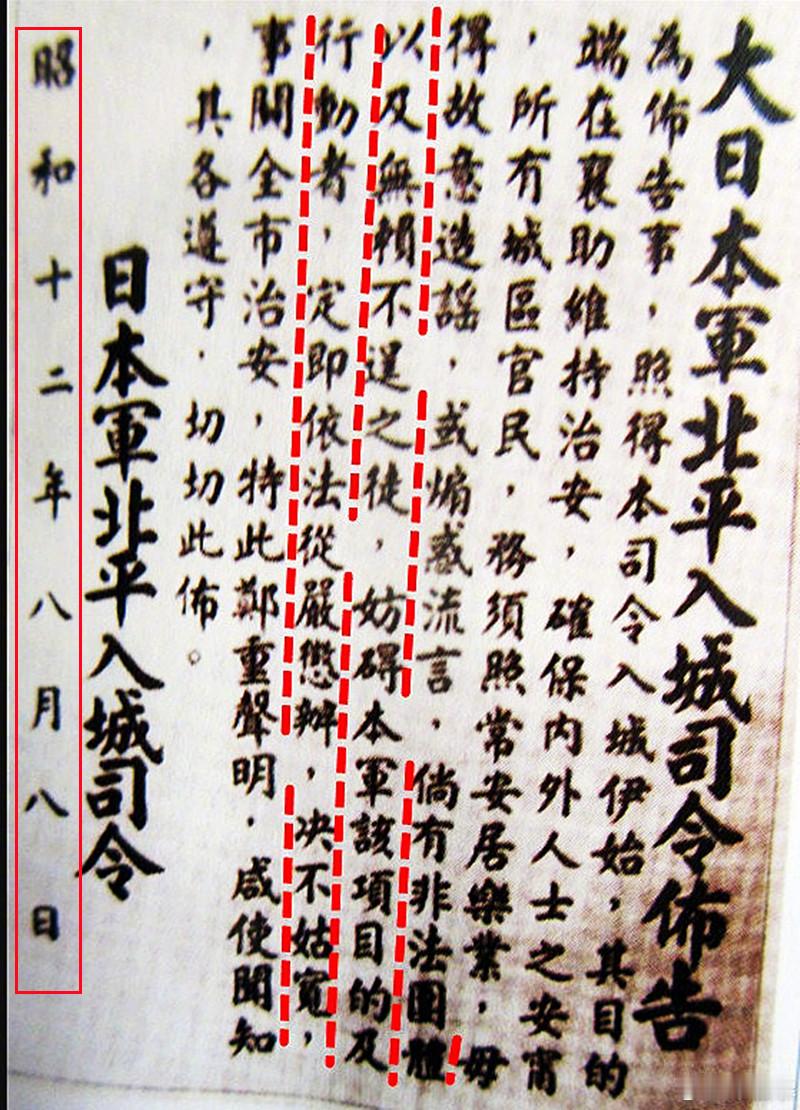 大日本軍北平入城司令佈告
為佈告事，照得本司令入城伊始，其目的
端在襄助維持治安，確保內外人士之安甯
，所有城區官民，務須照常安居樂業，毋
得故意造謠，或煽惑流言，倘有非法團體
以及無賴不逞之徒，妨碍本軍該項目的及
行動者，定即依法從嚴懲辦，决不姑寬，
事關全市治安，特此鄭重聲明．咸使聞知
，其各遵守．切切此佈。
日本軍北平入城司令
昭和十二年八月八日